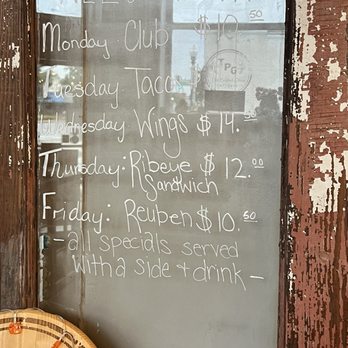 Monday Club $10.50
Tuesday Taco
Wednesday Wings $14.50
Thursday: Ribeye $12.00
Sandwich
Friday: Reuben $10.50
- all specials served
with a side + drink -